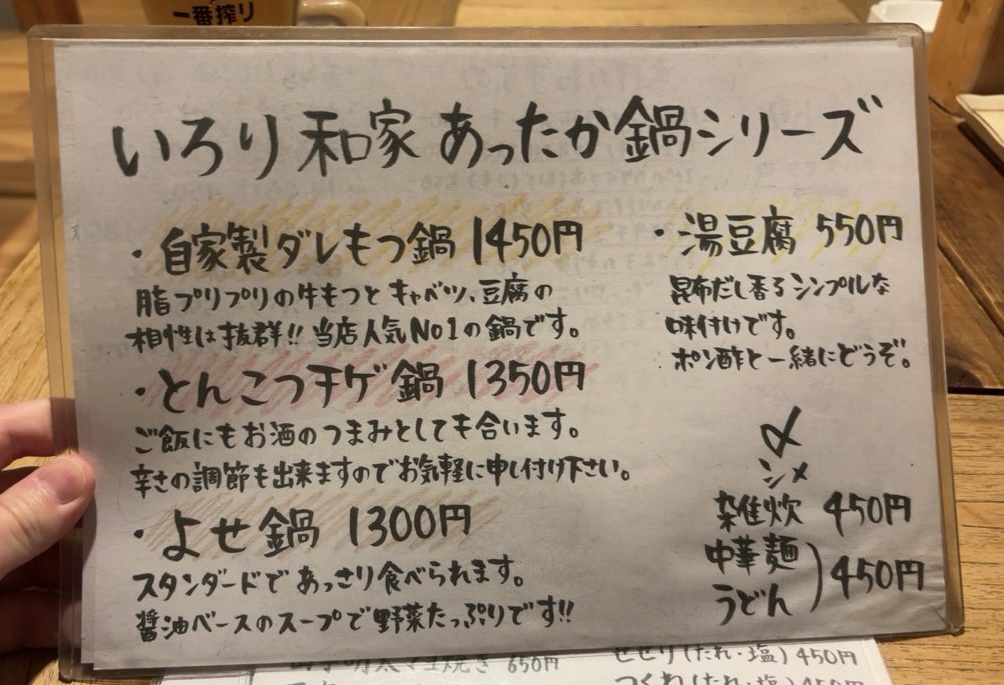 一番搾り
いろり和家 あったか鍋シリーズ
・自家製ダレもつ鍋 1450円
脂プリプリの牛もつとキャベツ、豆腐の
相性は抜群!! 当店人気No1の鍋です。
・とんこつチゲ鍋 1350円
ご飯にもお酒のつまみとしても合います。
辛さの調節も出来ますのでお気軽に申し付け下さい。
・よせ鍋 1300円
スタンダードであっさり食べられます。
醤油ベースのスープで野菜たっぷりです!!
・湯豆腐 550円
昆布だし香るシンプルな
味付けです。
ポン酢と一緒にどうぞ。
〆
シメ
雑炊 450円
中華麺
うどん
)450円
焼き 650円
せせり(たれ・塩)450円
つくね(たれ・塩)450円